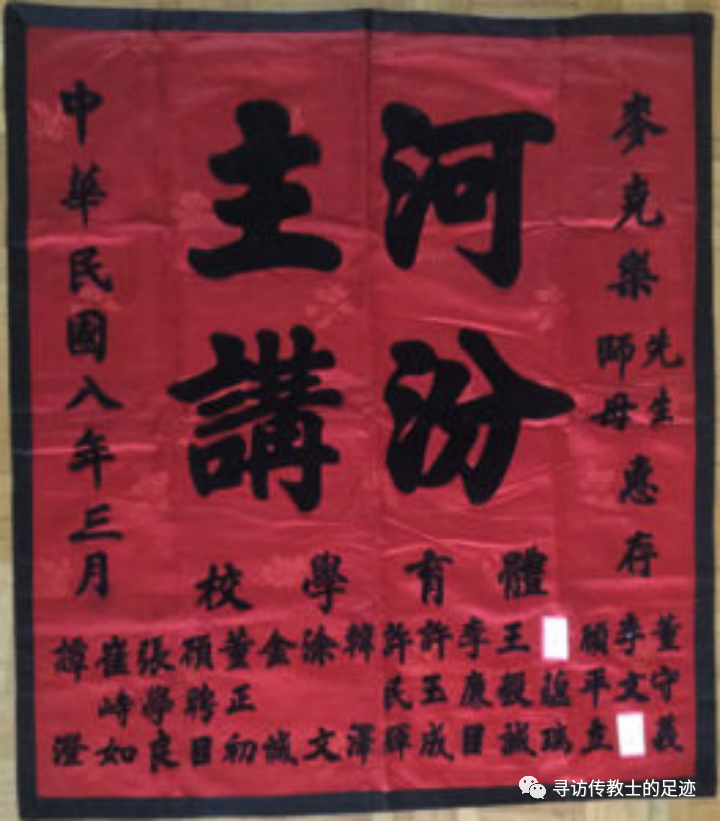 麥克樂先生師母惠存
河汾
主講
中華民國八年三月
體育學校
董守義
李文
顧平
王毅誠
李廉
許玉成
許民輝
韓澤
涂文
金誠
董正初
聘
張學良
崔峙如
譚澄
寻访传教士的足迹